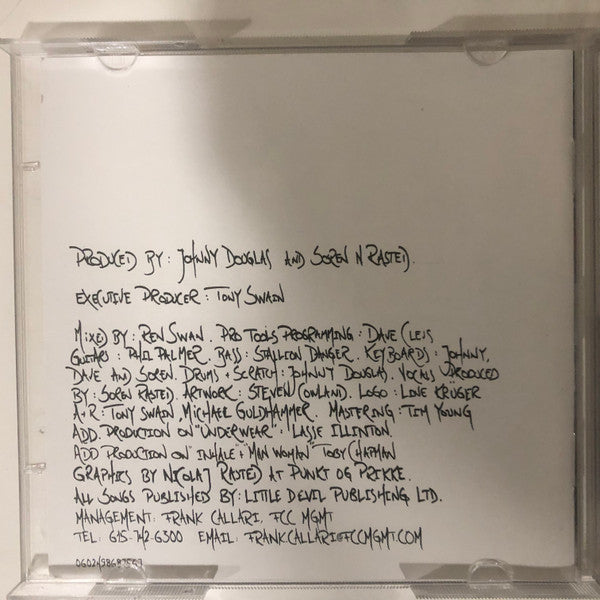 PRODUCED BY: JOHNNY DOUGLAS AND SOREN N RASTED.
EXECUTIVE PRODUCER: TONY SWAIN
MIXED BY: REN SWAN. PRO TOOLS PROGRAMMING: DAVE CLEWS
GUITARS: PHIL PALMER. BASS: STALLION DANGER. KEYBOARDS: JOHNNY,
DAVE AND SOREN. DRUMS + SCRATCH: JOHNNY DOUGLAS. VOCALS PRODUCED
BY: SOREN RASTED. ARTWORK: STEVEN COWLAND. LOGO: LINE KRUGER
A+R: TONY SWAIN, MICHAEL GULDHAMMER. MASTERING: TIM YOUNG
ADD. PRODUCTION ON "UNDERWEAR": LASSE ILLINTON.
ADD PRODUCTION ON INHALE + "MAN WOMAN" TOBY CHAPMAN
GRAPHICS BY NICOLAJ RASTED AT PUNKT OG PRIKKE.
ALL SONGS PUBLISHED BY: LITTLE DEVIL PUBLISHING LTD.
MANAGEMENT: FRANK CALLARI, FCC MGMT
TEL: 615.742.6300 EMAIL: FRANKCALLARI@FCCMGMT.COM